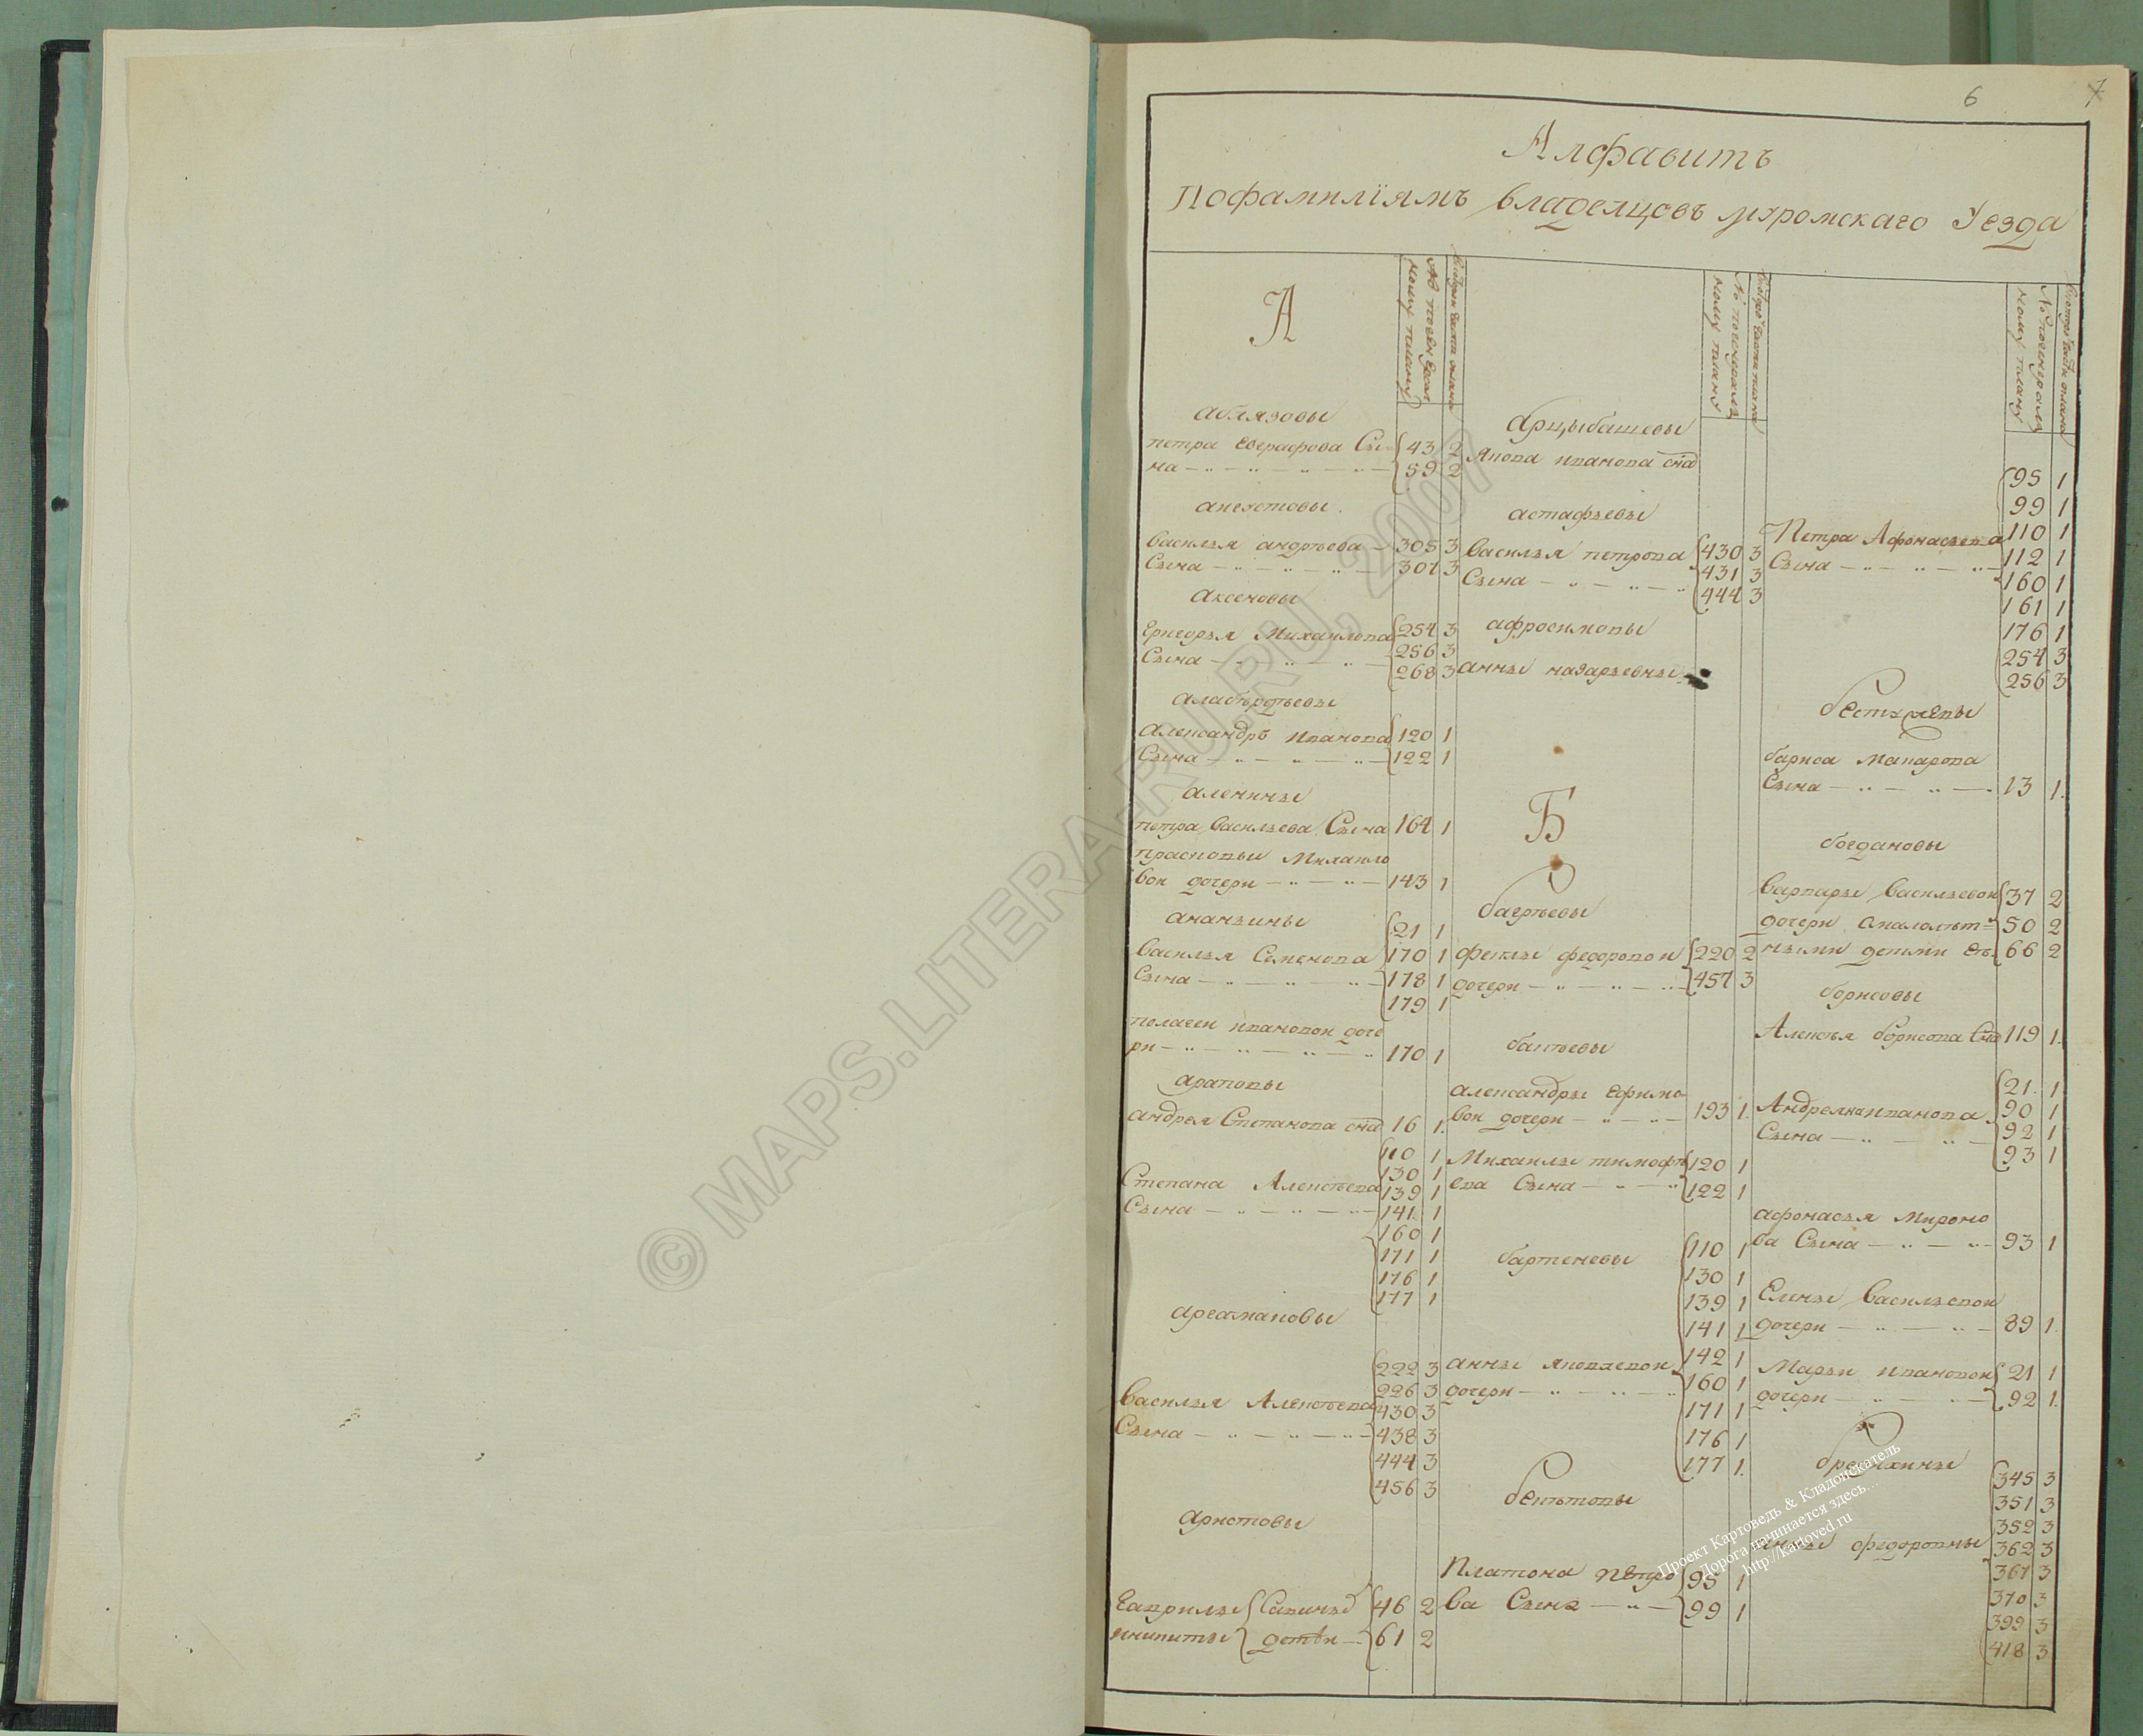 6 7
Алфавитъ
Пофамилїямъ владелцовъ муромскаго Уезда
А
аблязовы
петра Евграфова Сы
на 43 2
59 2
анехтовы
василья андреева 305 3
Сына 307 3
аксеновы
Григорья Михаилова 254 3
Сына 256 3
268 3
алабердеевы
александръ иванова 120 1
Сына 122 1
аленины
петра васильева Сына 164 1
прасковьи Михаило
вои дочери 143 1
ананьины
21 1
василья Семенова 170 1
Сына 178 1
179 1
пелагеи ивановои доче
ри 170 1
араповы
андрея Степанова сна 16 1
110 1
130 1
Степана Алексеева 139 1
Сына 141 1
160 1
171 1
176 1
177 1
аргамаковы
222 3
226 3
василья Алексеева 430 3
Сына 438 3
444 3
456 3
аристовы
Гаврилы Савины 46 2
никиты дети 61 2
арцыбашевы
Якова иванова сна
астафьевы
василья петрова 430 3
Сына 431 3
444 3
афросимовы
анны назарьевны
Б
багреевы
феклы федоровои 220 2
дочери 457 3
бакеевы
александры Ефимо
вои дочери 193 1
Михаилы тимофе 120 1
ева Сына 122 1
бартеневы
110 1
130 1
139 1
141 1
анны яковлевои 142 1
дочери 160 1
171 1
176 1
177 1
бекетовы
Платона петро 95 1
ва Сына 99 1
95 1
99 1
Петра Афонасьева 110 1
Сына 112 1
160 1
161 1
176 1
254 3
256 3
бестужевы
бориса Макарова
Сына 13 1
богдановы
варвары васильевои 37 2
дочери 50 2
ными детми 66 2
борисовы
Алексея борисова Сна 119 1
21 1
Андреяна иванова 90 1
Сына 92 1
93 1
афонасья Мироно
ва Сына 93 1
Елены васильевои
дочери 89 1
Марьи ивановои 21 1
дочери 92 1
бредихины
345 3
351 3
352 3
анны федоровны 362 3
367 3
370 3
399 3
418 3
© MAPS.LITERA-RU.RU, 2007
Проект Картоведъ & Кладоискатель
Дорога начинается здесь...
http://kartoved.ru